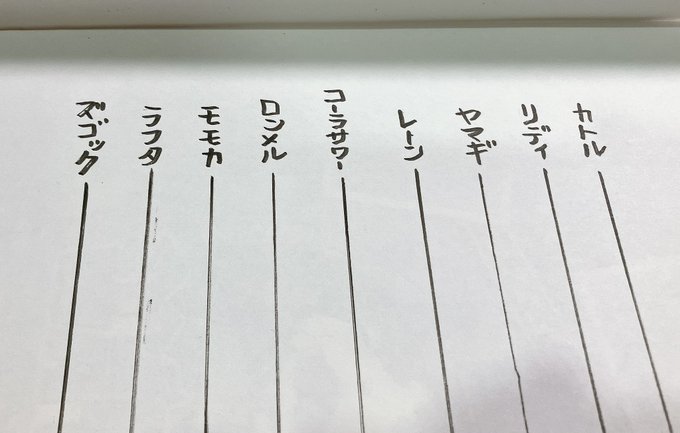 カトル
リディ
ヤマギ
レーン
コーラサワー
ロンメル
モモカ
ラフタ
ズゴック